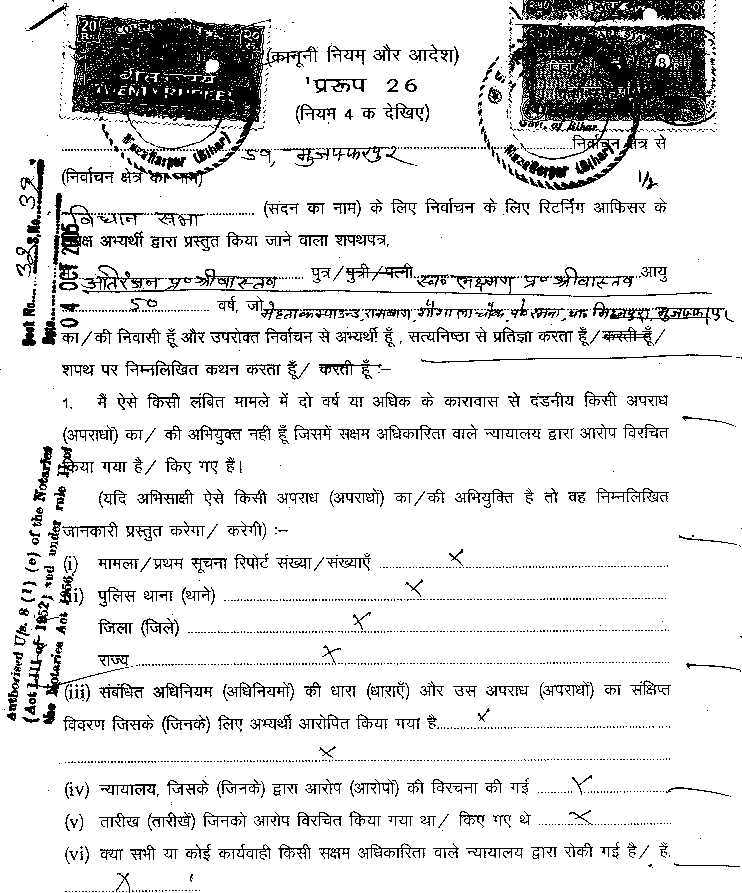 20
TWENTY RUPEES
Muzaffarpur (Bihar)
Govt. of Bihar
Muzaffarpur (Bihar)
(कानूनी नियम और आदेश)
'प्ररूप 26
(नियम 4 क देखिए)
59, मुजफ्फरपुर निर्वाचन क्षेत्र से
(निर्वाचन क्षेत्र का नाम)
1/2
विधान सभा (सदन का नाम) के लिए निर्वाचन के लिए रिटर्निंग आफिसर के
समक्ष अभ्यर्थी द्वारा प्रस्तुत किया जाने वाला शपथपत्र,
अतिरंजन प्र० श्रीवास्तव पुत्र/पुत्री/पत्नी स्व० लक्ष्मण प्र० श्रीवास्तव आयु
50 वर्ष, जो मेहता कम्पाउन्ड, रामबाग, मुजफ्फरपुर
का/की निवासी हूँ और उपरोक्त निर्वाचन से अभ्यर्थी हूँ, सत्यनिष्ठा से प्रतिज्ञा करता हूँ/करती हूँ/
शपथ पर निम्नलिखित कथन करता हूँ/ करती हूँ :–
1. मैं ऐसे किसी लंबित मामले में दो वर्ष या अधिक के कारावास से दंडनीय किसी अपराध
(अपराधों) का/ की अभियुक्त नही हूँ जिसमें सक्षम अधिकारिता वाले न्यायालय द्वारा आरोप विरचित
किया गया है/ किए गए हैं।
(यदि अभिसाक्षी ऐसे किसी अपराध (अपराधों) का/की अभियुक्ति है तो वह निम्नलिखित
जानकारी प्रस्तुत करेगा/ करेगी) :–
(i) मामला/प्रथम सूचना रिपोर्ट संख्या/संख्याएँ X
(ii) पुलिस थाना (थाने) X
जिला (जिले) X
राज्य X
(iii) संबंधित अधिनियम (अधिनियमों) की धारा (धाराएँ) और उस अपराध (अपराधों) का संक्षिप्त
विवरण जिसके (जिनके) लिए अभ्यर्थी आरोपित किया गया है X
X
(iv) न्यायालय, जिसके (जिनके) द्वारा आरोप (आरोपों) की विरचना की गई X
(v) तारीख (तारीखें) जिनको आरोप विरचित किया गया था/ किए गए थे X
(vi) क्या सभी या कोई कार्यवाही किसी सक्षम अधिकारिता वाले न्यायालय द्वारा रोकी गई है/ हैं.
X
S.No. 32
Date 04 OCT 2005
Authorised U/s. 8 (1) (e) of the Notaries
(Act LIII of 1952) and under rule
the Notaries Act 1956